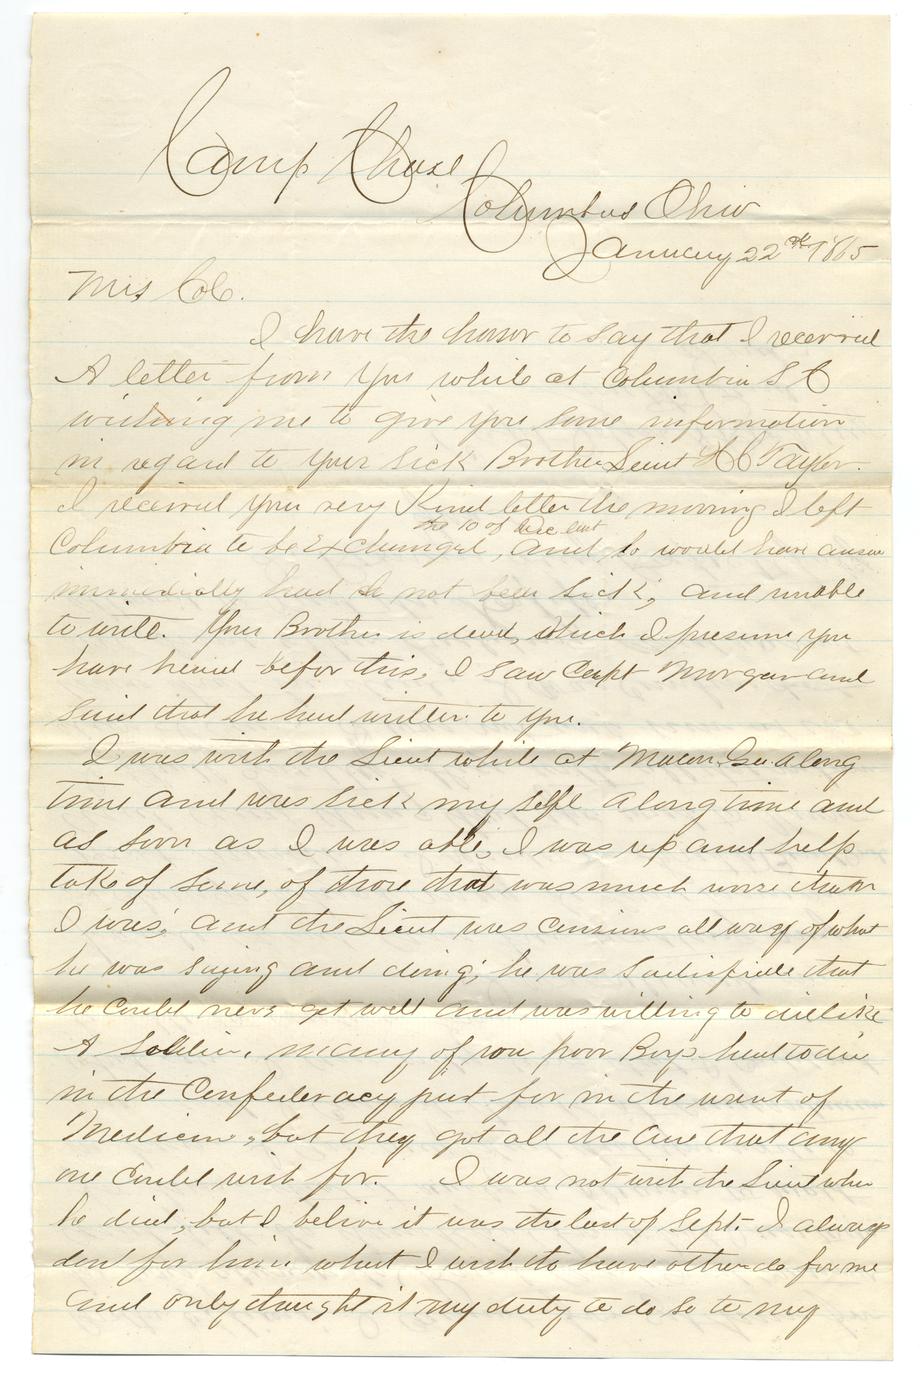 Camp Chase
Columbus Ohio
January 22nd 1865
Mrs Cole.
I have the honor to say that I received
A letter from you while at Columbia S C
wishing me to give you some information
in regard to your sick Brother Lieut H C Taylor.
I received your very Kind letter the morning I left
the 10 of Dec last
Columbia to be Exchanged, and so would have answ
immidially had I not been sick, and unable
to write. Your Brother is dead, which I presume you
have heard befor this, I saw Capt Morgan and
said that he had written to you.
I was with the Lieut while at Macon, Ga. along
time and was sick my self along time and
as soon as I was able, I was up and help
take of some, of those that was much worse than
I was, and the Lieut was all ways of what
he was saying and doing; he was that
he could never get well and was willing to die like
A Soldier. many of our poor Boys had to die
in the Confederacy just for in the want of
Medicine, but they got all the Care that any
one could wish for. I was not with the Lieut when
he died, but I belive it was the last of Sept. I always
don for him what I wish to have others do for me
and only thought it my duty to do so to my